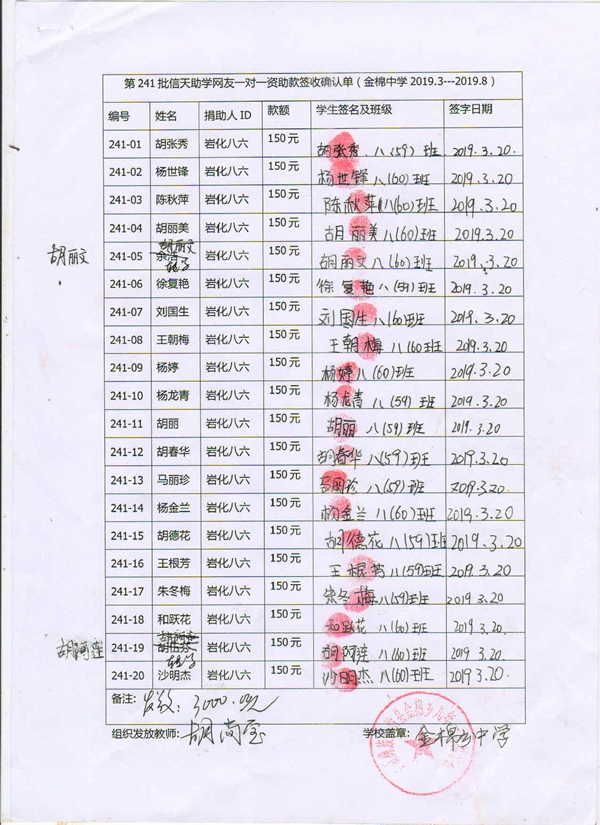 第241批信天助学网友一对一资助款签收确认单（金棉中学2019.3---2019.8）
编号 姓名 捐助人ID 款额 学生签名及班级 签字日期
241-01 胡张秀 岩化八六 150元 胡张秀 八(59)班 2019.3.20.
241-02 杨世锋 岩化八六 150元 杨世锋 八(60)班 2019.3.20
241-03 陈秋萍 岩化八六 150元 陈秋萍 八(60)班 2019.3.20
241-04 胡丽美 岩化八六 150元 胡丽美 八(60)班 2019.3.20
胡丽文 241-05 胡丽文 转学 岩化八六 150元 胡丽文 八(60)班 2019.3.20
241-06 徐复艳 岩化八六 150元 徐复艳 八(59)班 2019.3.20
241-07 刘国生 岩化八六 150元 刘国生 八(60)班 2019.3.20
241-08 王朝梅 岩化八六 150元 王朝梅 八(60)班 2019.3.20
241-09 杨婷 岩化八六 150元 杨婷 八(60)班 2019.3.20
241-10 杨龙青 岩化八六 150元 杨龙青 八(59)班 2019.3.20
241-11 胡丽 岩化八六 150元 胡丽 八(59)班 2019.3.20
241-12 胡春华 岩化八六 150元 胡春华 八(59)班 2019.3.20
241-13 马丽珍 岩化八六 150元 马丽珍 八(59)班 2019.3.20
241-14 杨金兰 岩化八六 150元 杨金兰 八(60)班 2019.3.20
241-15 胡德花 岩化八六 150元 胡德花 八(59)班 2019.3.20
241-16 王根芳 岩化八六 150元 王根芳 八(59)班 2019.3.20
241-17 朱冬梅 岩化八六 150元 朱冬梅 八(59)班 2019.3.20
241-18 和跃花 岩化八六 150元 和跃花 八(60)班 2019.3.20
胡阿莲 241-19 胡阿莲 胡伍芬 转学 岩化八六 150元 胡阿莲 八(60)班 2019.3.20
241-20 沙明杰 岩化八六 150元 沙明杰 八(60)班 2019.3.20
备注：发放：3000.0元
组织发放教师： 胡尚 学校盖章： 金棉中学